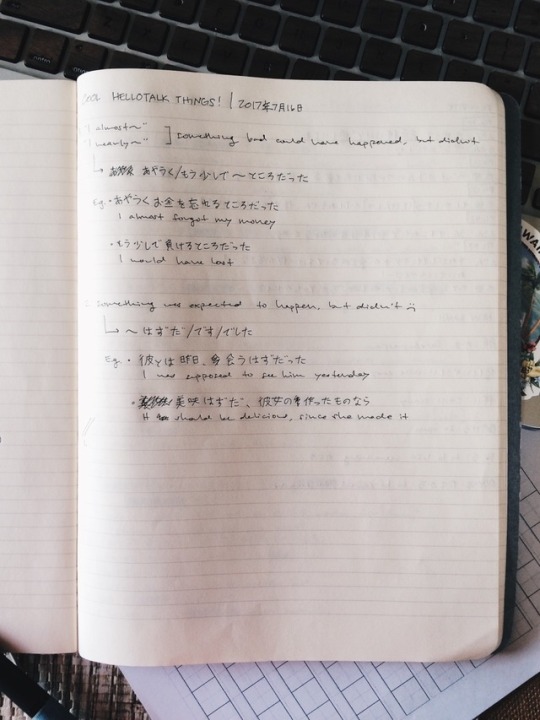 COOL HELLOTALK THINGS! | 2017年7月16日
"I almost~"
"I nearly~" ] something bad could have happened, but didn't
↳ あやうく/もう少しで〜ところだった
Eg. ・あやうくお金を忘れるところだった
I almost forgot my money
・もう少しで負けるところだった
I would have lost
Something was expected to happen, but didn't
↳ 〜はずだ/です/でした
Eg. ・彼とは昨日、会うはずだった
I was supposed to see him yesterday
・美味はずだ、彼女の作ったものなら
It should be delicious, since she made it